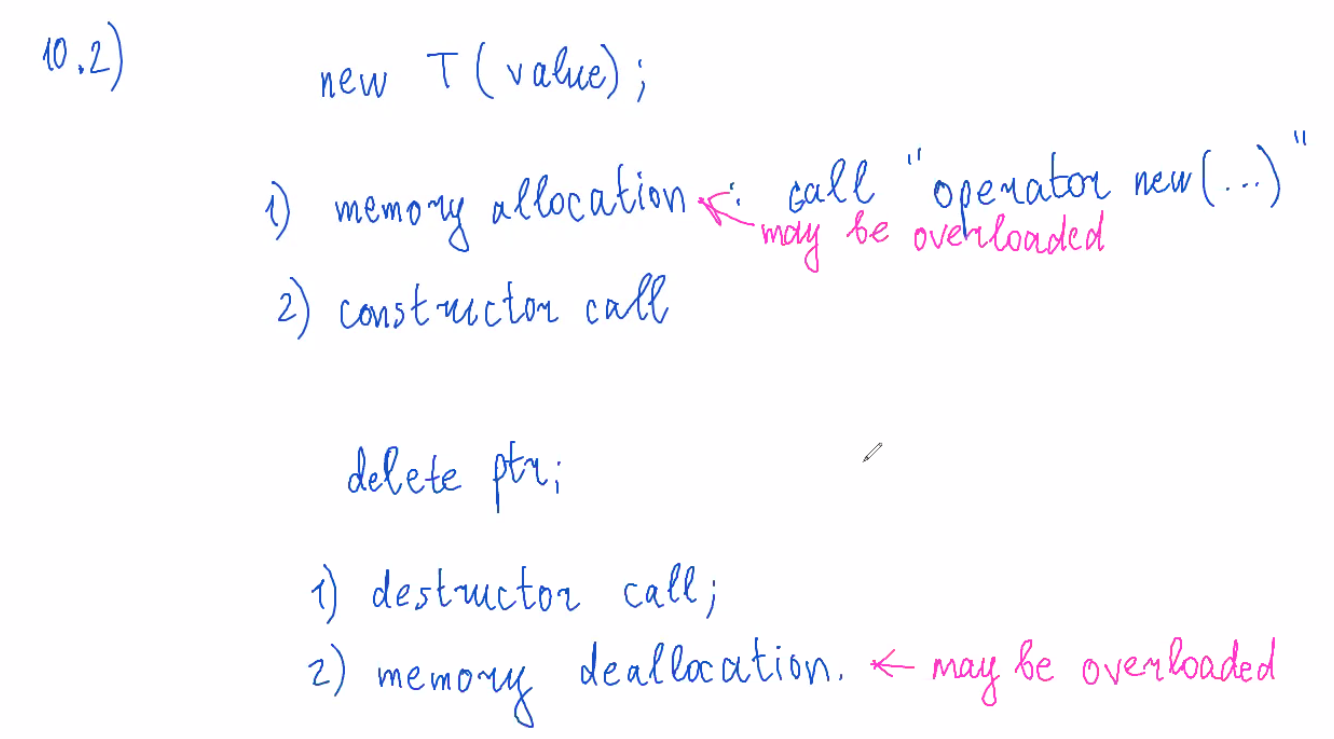 10.2)
new T(value);
1) memory allocation : call "operator new(...)"
may be overloaded
2) constructor call
delete ptr;
1) destructor call;
2) memory deallocation. ← may be overloaded